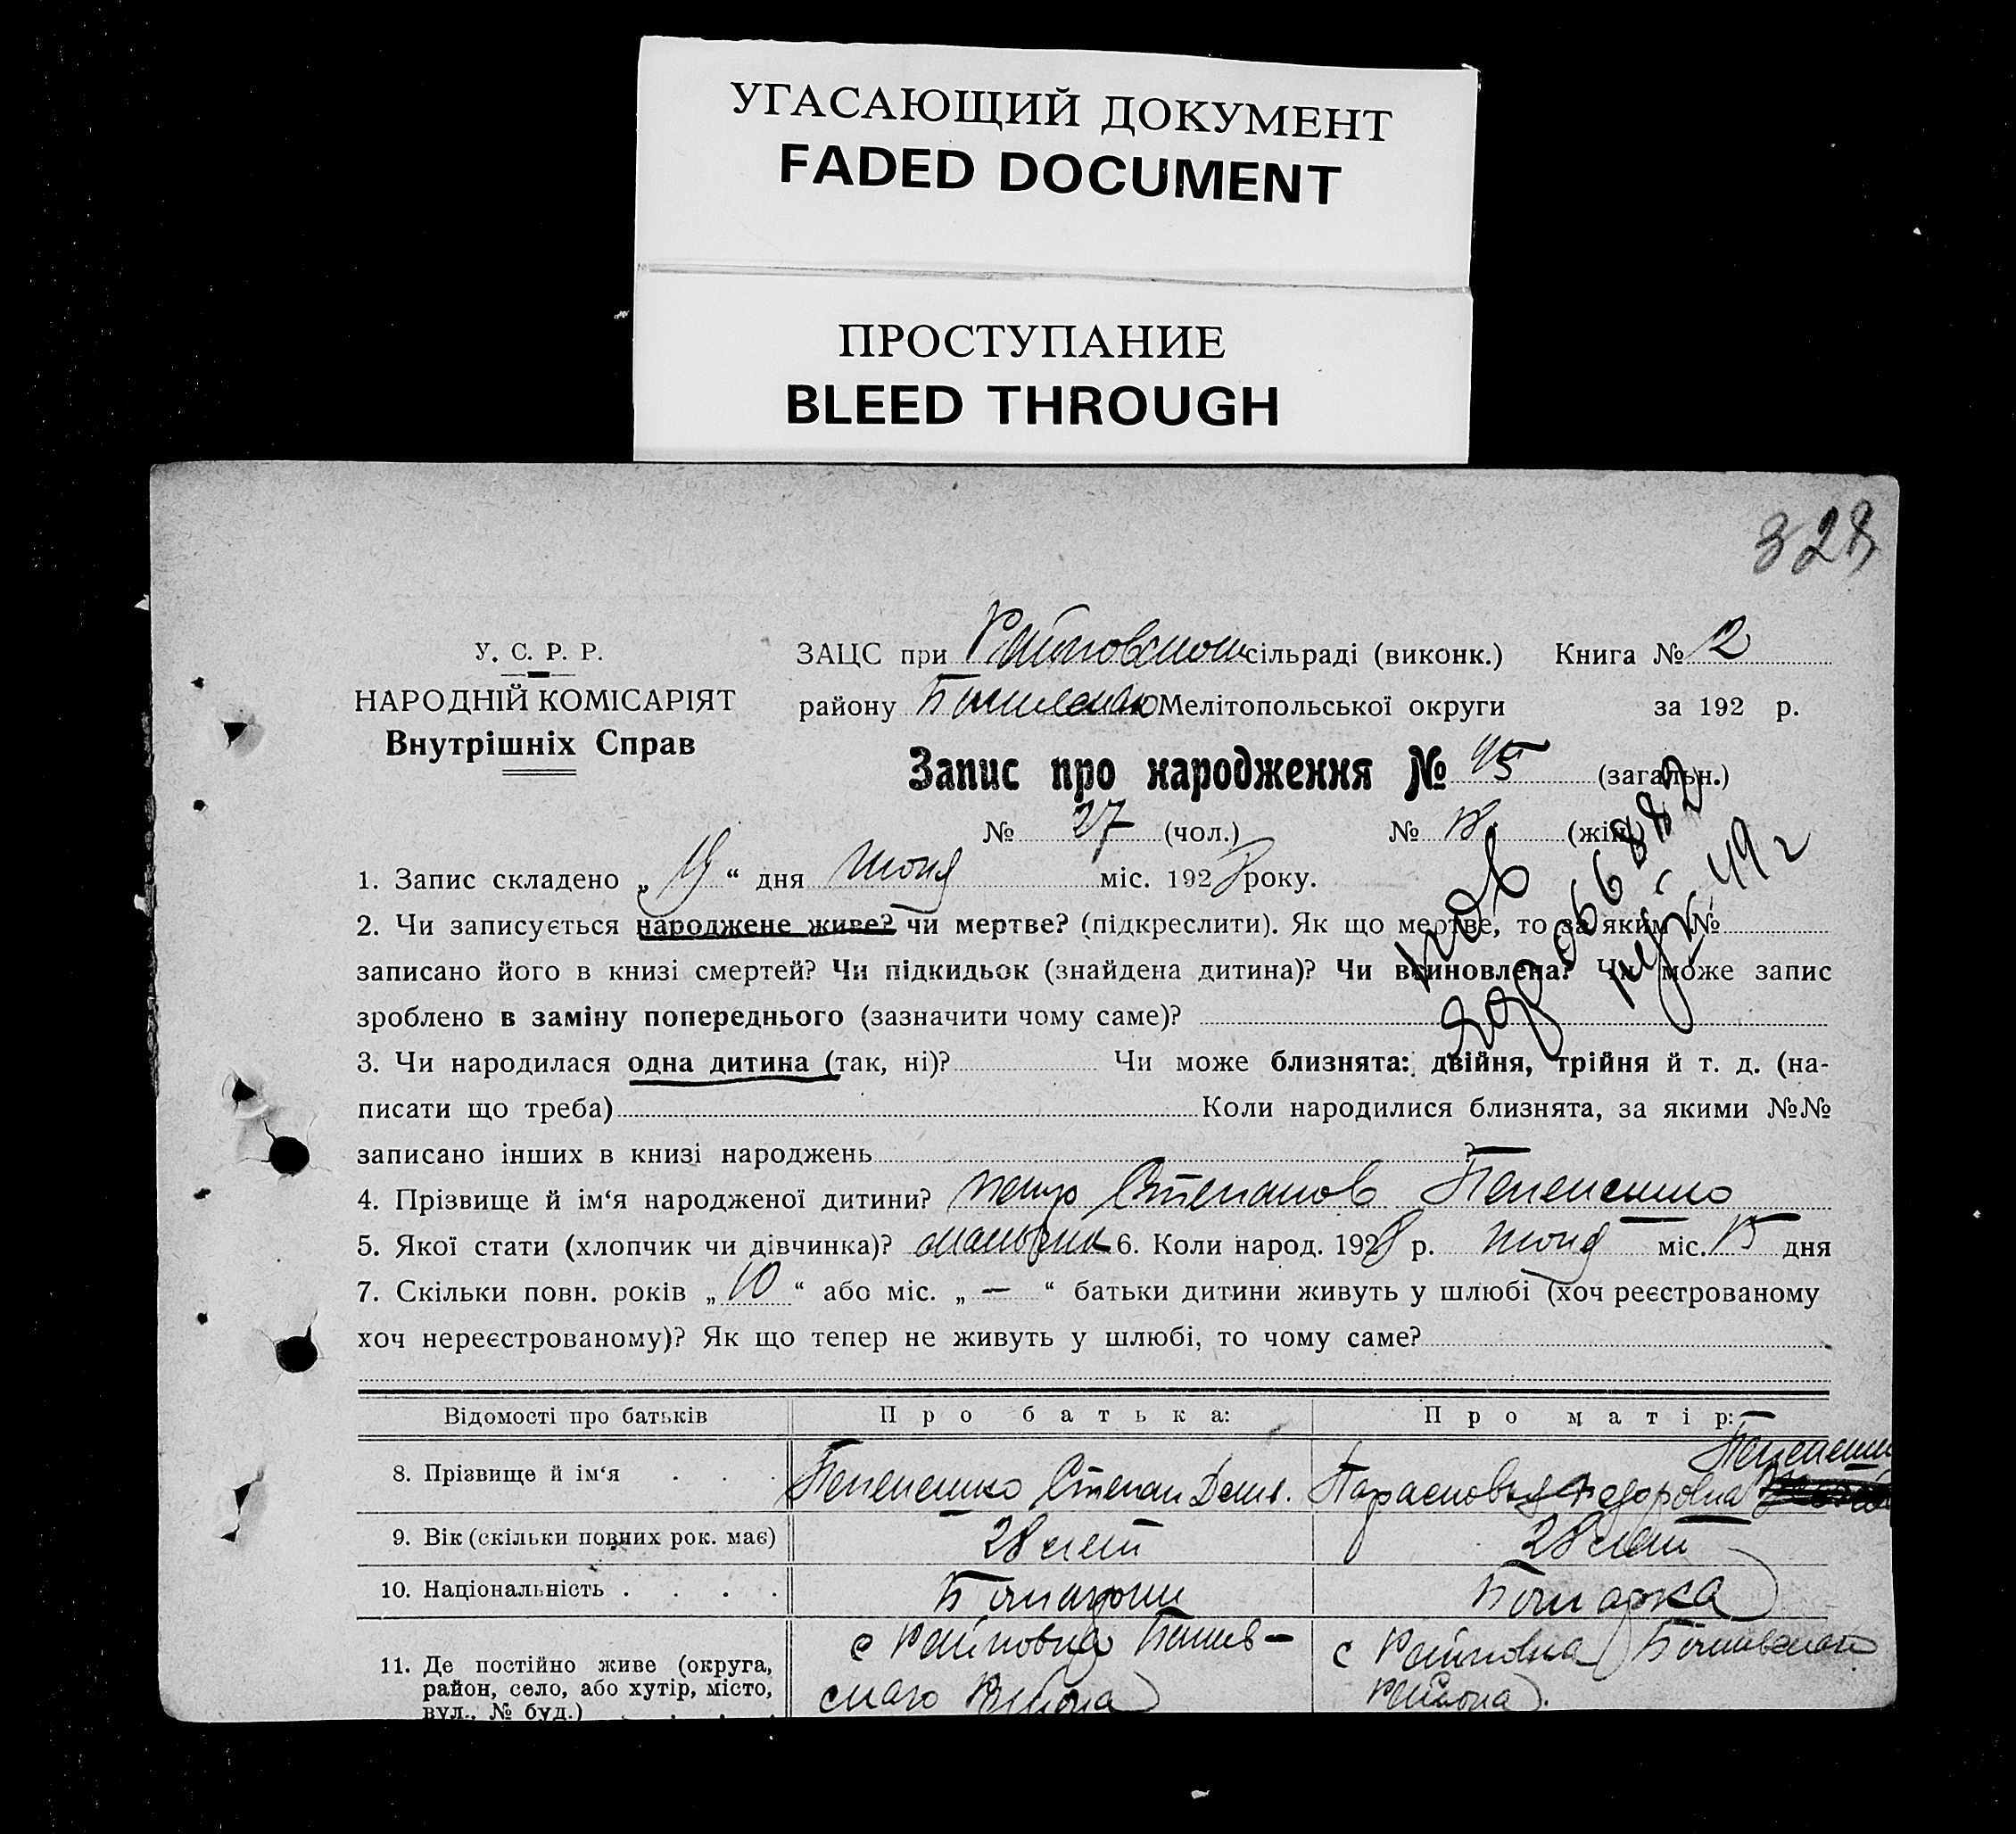 УГАСАЮЩИЙ ДОКУМЕНТ
FADED DOCUMENT
ПРОСТУПАНИЕ
BLEED THROUGH
328
У. С. Р. Р.
НАРОДНІЙ КОМІСАРІЯТ
Внутрішніх Справ
ЗАЦС при Райновском сільраді (виконк.) Книга № 2
району Мелітопольської округи за 192 р.
Запис про народження № 45 (загальн.)
№ 27 (чол.) № 18 (жін.)
1. Запис складено „ 19 “ дня июня міс. 1928 року.
2. Чи записується народжене живе? чи мертве? (підкреслити). Як що мертве, то за яким №
записано його в книзі смертей? Чи підкидьок (знайдена дитина)? Чи всиновлена? Чи може запис
зроблено в заміну попереднього (зазначити чому саме)?
3. Чи народилася одна дитина (так, ні)? Чи може близнята: двійня, трійня й т. д. (на-
писати що треба) Коли народилися близнята, за якими №№
записано інших в книзі народжень ?
4. Прізвище й ім‘я народженої дитини? Степанов
5. Якої стати (хлопчик чи дівчинка)? мальчик 6. Коли народ. 1928 р. июня міс. 15 дня
7. Скільки повн. років „ 10 “ або міс. „ — “ батьки дитини живуть у шлюбі (хоч реєстрованому
хоч нереєстрованому)? Як що тепер не живуть у шлюбі, то чому саме?
Відомості про батьків Про батька: Про матір:
8. Прізвище й ім‘я . . . Степан Федоровна
9. Вік (скільки повних рок. має) 28 лет 28 лет
10. Національність . . . . Болгарин Болгарка
11. Де постійно живе (округа,
район, село, або хутір, місто,
вул., № буд.)
с Райновка
ского Района
с Райновка
Района